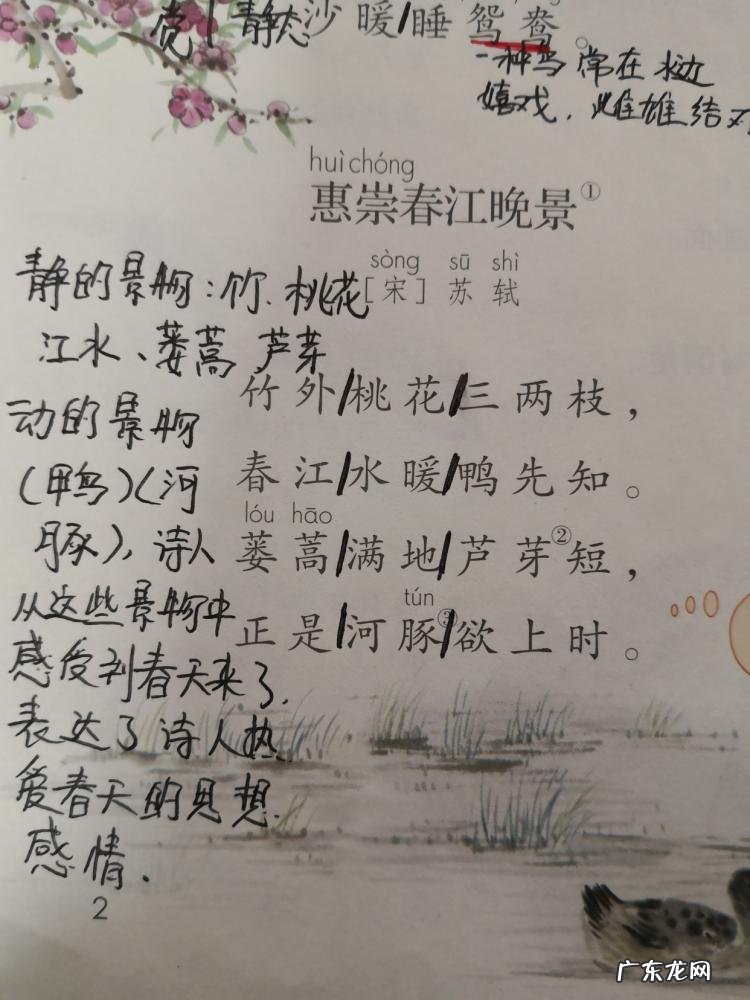 觉 静态 沙暖/睡鸳鸯。
一种鸟 常在水边
嬉戏，雌雄结对
huì chóng
惠崇春江晚景①
sòng sū shì
[宋] 苏轼
静的景物：竹、桃花
江水、蒌蒿 芦芽
竹外/桃花/三两枝，
动的景物
（鸭）（河
豚），诗人
从这些景物中
感受到春天来了，
表达了诗人热
爱春天的思想
感情。
春江/水暖/鸭先知。
lóu hāo
蒌蒿/满地/芦芽②短，
tún
正是/河豚③/欲上时。
2
广东龙网